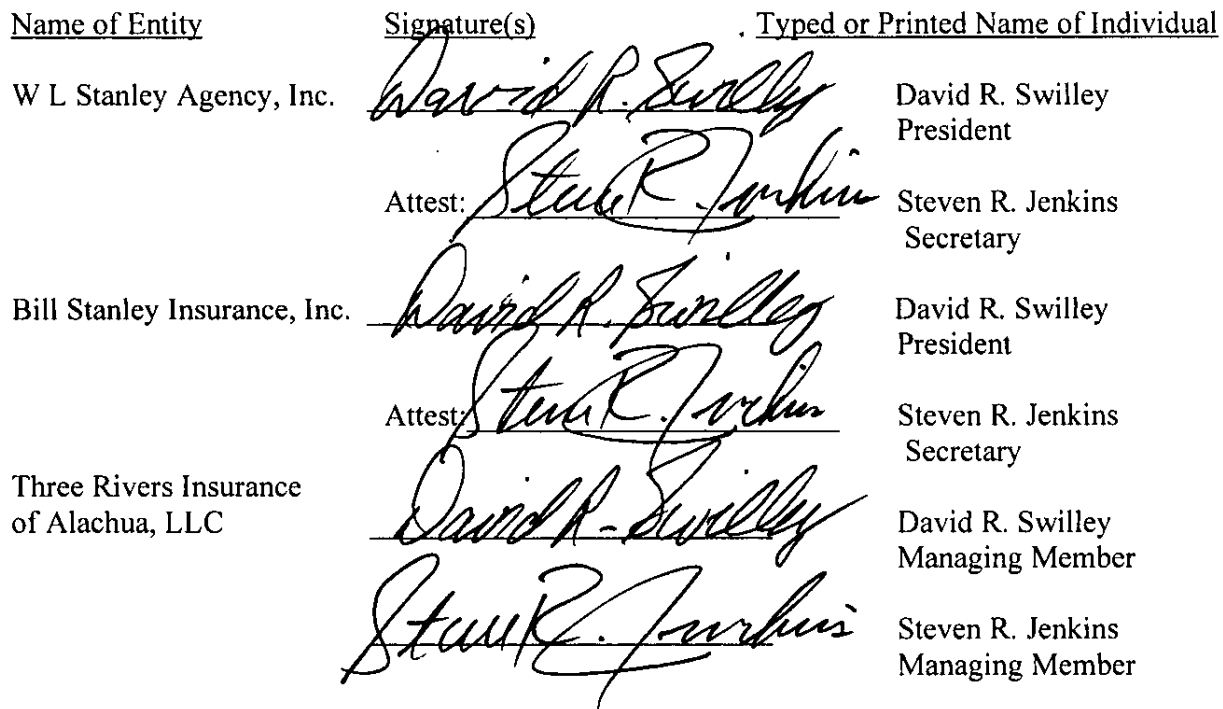 Name of Entity Signature(s) Typed or Printed Name of Individual
W L Stanley Agency, Inc. David R. Swilley David R. Swilley
President
Attest: Steven R. Jenkins Steven R. Jenkins
Secretary
Bill Stanley Insurance, Inc. David R. Swilley David R. Swilley
President
Attest: Steven R. Jenkins Steven R. Jenkins
Secretary
Three Rivers Insurance
of Alachua, LLC David R. Swilley David R. Swilley
Managing Member
Steven R. Jenkins Steven R. Jenkins
Managing Member